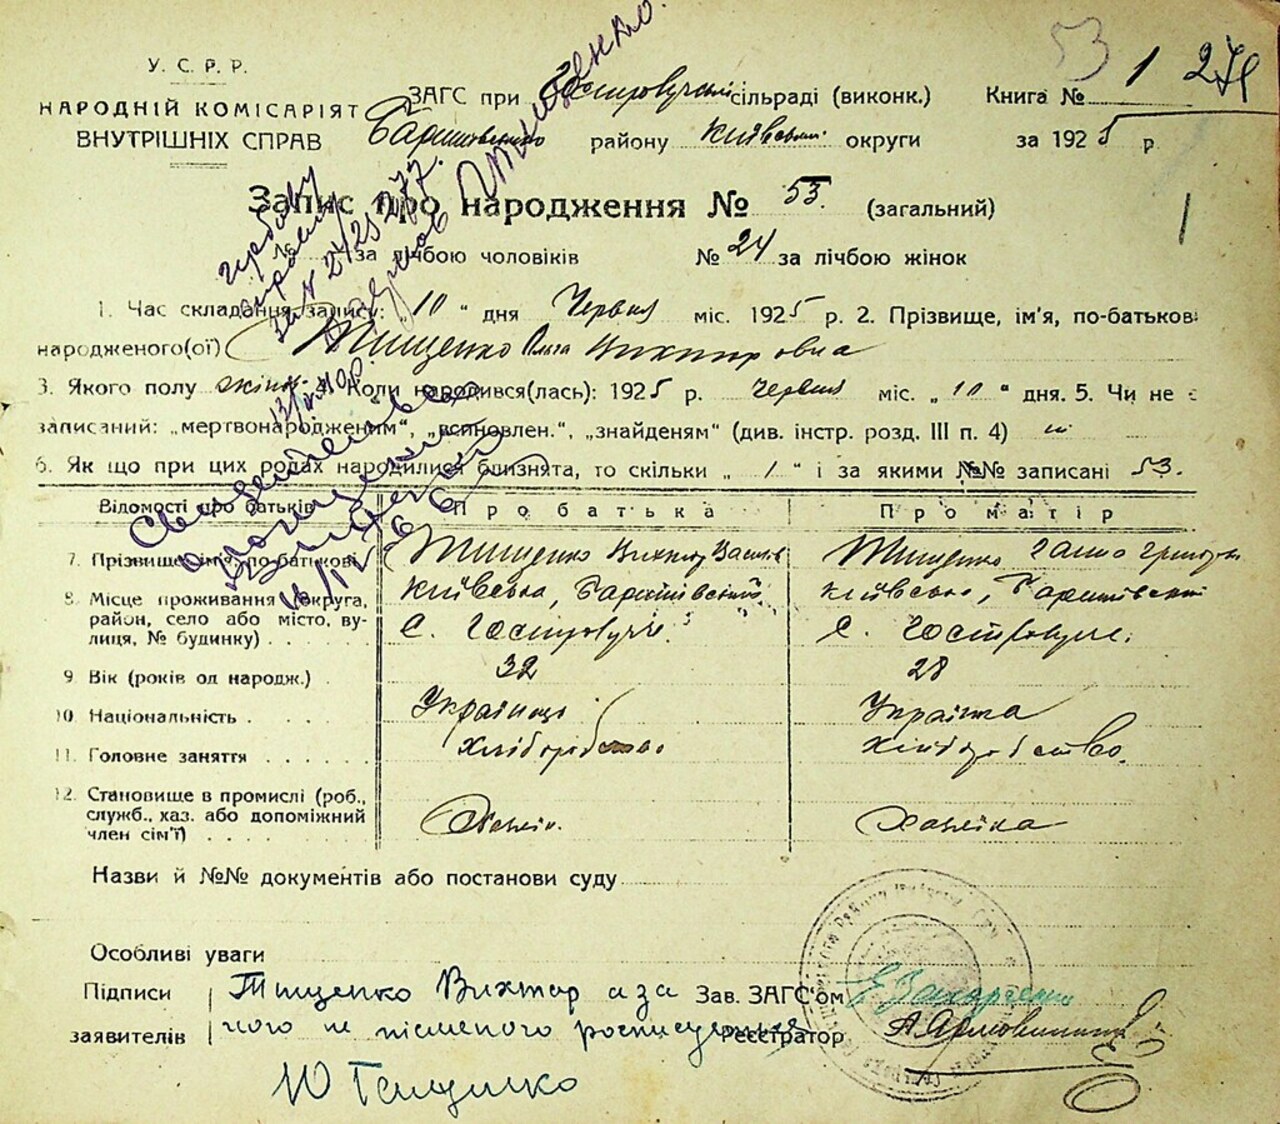 53
1
279
У. С. Р. Р.
НАРОДНІЙ КОМІСАРІЯТ
ВНУТРІШНІХ СПРАВ
ЗАГС при сільраді (виконк.) Книга №
району Київськ. округи за 1925 р.
Запис про народження № 53. (загальний)
за лічбою чоловіків № 24 за лічбою жінок
1. Час складання запису: „10“ дня Червня міс. 1925 р. 2. Прізвище, ім'я, по-батькові
народженого(ої) Тищенко Ольга Викторовна
3. Якого полу жіноч. 4. Коли народився(лась): 1925 р. Червня міс. „10“ дня. 5. Чи не є
записаний: „мертвонародженим“, „всиновлен.“, „знайденям“ (див. інстр. розд. III п. 4) ні
6. Як що при цих родах народилися близнята, то скільки „1“ і за якими №№ записані 53.
Відомості про батьків Про батька Про матір
7. Прізвище, ім'я, по-батькові Тищенко Виктор Тищенко Ганна
8. Місце проживання (округа, район, село або місто, вулиця, № будинку) Київська, Баришівський С. Гостролучье. Київська, Баришівський С. Гостролучье.
9. Вік (років од народж.) 32 28
10. Національність Українець Українка
11. Головне заняття хліборобство хліборобство.
12. Становище в промислі (роб., служб., хаз. або допоміжний член сім'ї) Хазяїн. Хазяїка
Назви й №№ документів або постанови суду
Особливі уваги
Підписи Тищенко Виктор а за Зав. ЗАГС'ом
заявителів його не пісменого росписується Реєстратор
Ю Тищенко